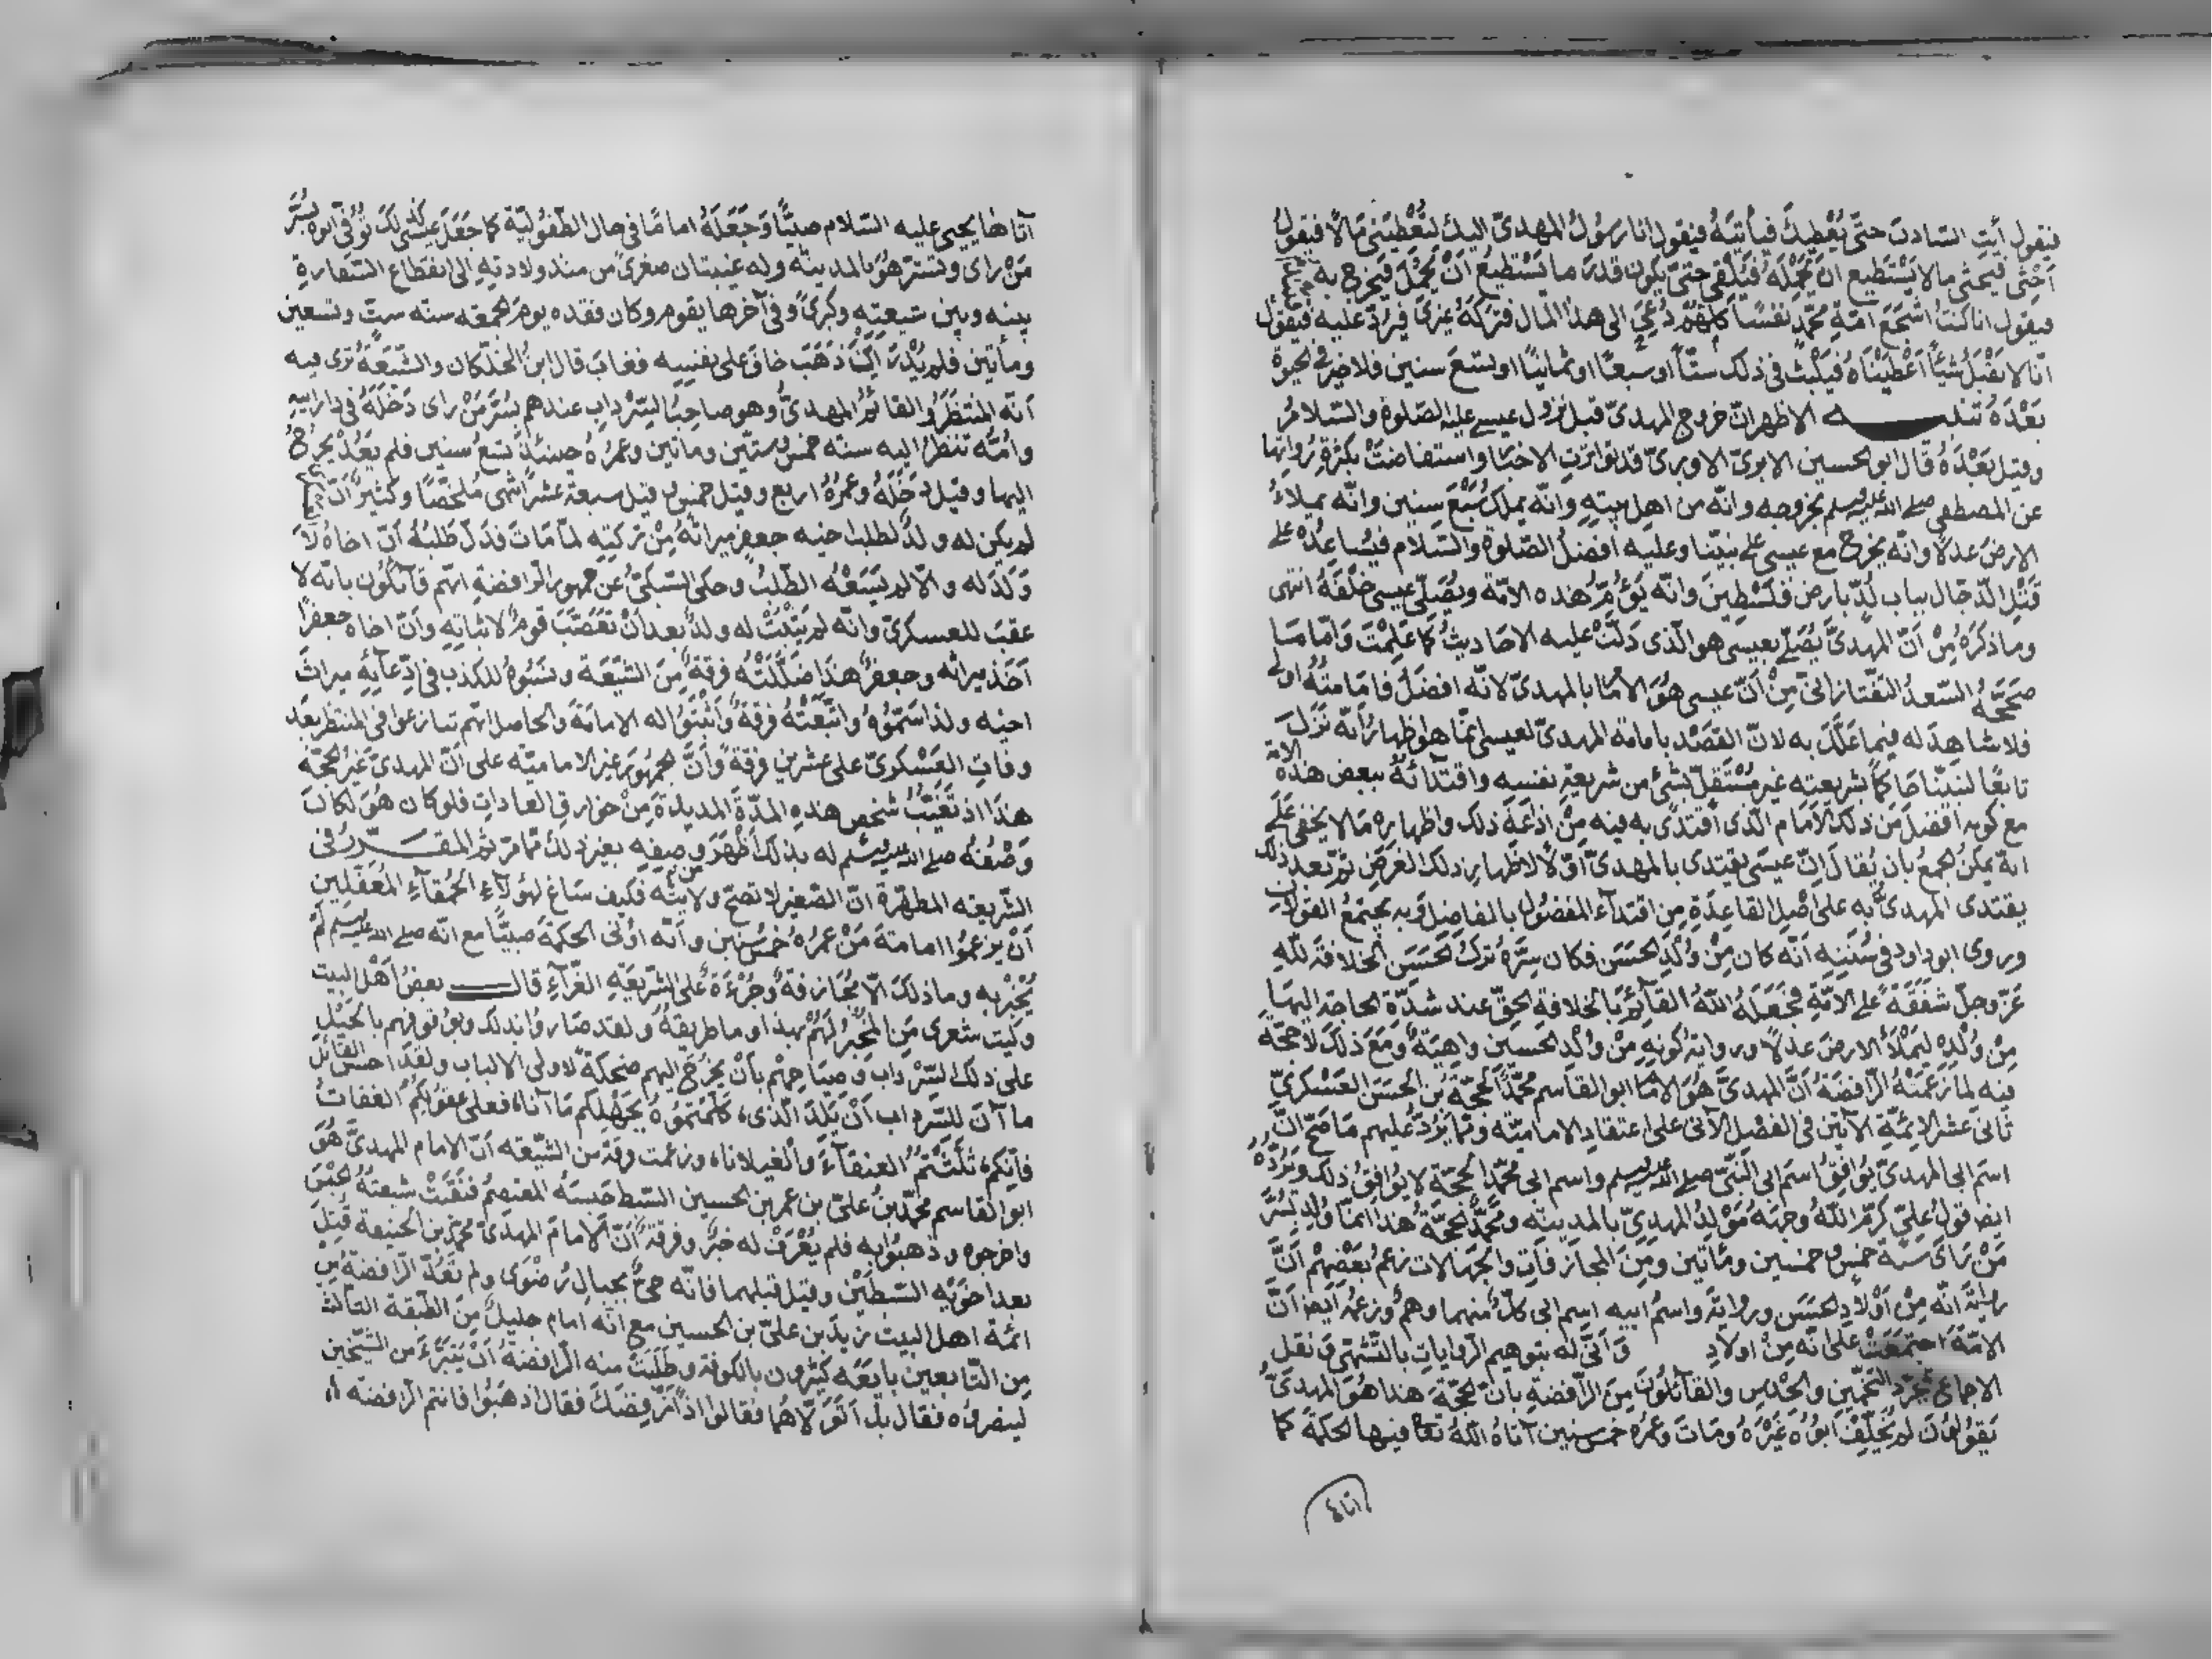 فيقول أيت السادن حتى يعطيك فيأتيه فيقول انا رسول المهدي اليك لتعطيني مالا فيقول
احثي فيحثي مالا يستطيع ان يحمله فيلقي حتى يكون قدر ما يستطيع ان يحمل فيخرج به
فيقول انا كنت اشجع امة محمد نفسا كلهم دعي الى هذا المال فتركه غيري فيرد عليه فيقول
انا لا نقبل شيئا اعطيناه فيلبث في ذلك ستا او سبعا او ثمانيا او تسع سنين فلا خير في الحيوة
بعده تنبيه الاظهر ان خروج المهدي قبل نزول عيسى عليه الصلوة والسلام
وقيل بعده قال ابو الحسين الابري قد تواترت الاخبار واستفاضت بكثرة رواتها
عن المصطفى صلى الله عليه وسلم بخروجه وانه من اهل بيته وانه يملك سبع سنين وانه يملاء
الارض عدلا وانه يخرج مع عيسى على نبينا وعليه افضل الصلوة والسلام فيساعده على
قتل الدجال بباب لد بارض فلسطين وانه يؤم هذه الامة ويصلي عيسى خلفه انتهى
وما ذكره من ان المهدي يصلي بعيسى هو الذي دلت عليه الاحاديث كما علمت واما ما
صححه السعد التفتازاني من ان عيسى هو الامام بالمهدي لانه افضل فامامته اولى
فلا شاهد له فيما علل به لان القصد بامامة المهدي لعيسى انما هو اظهار انه نزل
تابعا لنبينا حاكما بشريعته غير مستقل بشئ من شريعة نفسه واقتدائه ببعض هذه الامة
مع كونه افضل من ذلك الامام الذي اقتدى به فيه من اذاعة ذلك واظهاره ما لا يخفى على
انه يمكن الجمع بان يقال ان عيسى يقتدى بالمهدي اولا لاظهار ذلك الغرض ثم بعد ذلك
يقتدى المهدي به على اصل القاعدة من اقتداء المفضول بالفاضل وبه يجتمع القولان
وروى ابو داود في سننه انه كان من ولد الحسن فكان سره ترك الحسن الخلافة لله
عز وجل شفقة على الامة فجعله الله القائم بالخلافة الحق عند شدة الحاجة اليها
من ولده ليملأ الارض عدلا ورواية كونه من ولد الحسين واهية ومع ذلك لا حجة
فيه لما زعمته الرافضة ان المهدي هو الامام ابو القاسم محمد الحجة بن الحسن العسكري
ثاني عشر الائمة الآتين في الفصل الآتي على اعتقاد الامامية ومما يرد عليهم ما صح ان
اسم ابي المهدي يوافق اسم ابي النبي صلى الله عليه وسلم واسم ابي محمد الحجة لا يوافق ذلك ويرده
ايضا قول علي كرم الله وجهه مولد المهدي بالمدينة ومحمد الحجة هذا انما ولد بسر
من رأى سنة خمس وخمسين ومأتين ومن المجازفات والجهالات زعم بعضهم ان
رواية انه من اولاد الحسن ورواية واسم ابيه اسم ابي كل منهما وهم وزعمه ايضا ان
الامة اجتمعت على انه من اولاد وأنى له بتوهيم الروايات بالتشهي ونقل
الاجماع بمجرد التخمين والحدس والقائلون من الرافضة بان الحجة هذا هو المهدي
يقولون لم يخلف ابوه غيره ومات وعمره خمس سنين آتاه الله تعالى فيها الحكمة كما
اتاها
آتاها يحيى عليه السلام صبيا وجعله اماما في حال الطفولية كما جعل عيسى كذلك توفي ابوه بسر
من راى وتستر هو بالمدينة وله غيبتان صغرى من منذ ولادته الى انقطاع السفارة
بينه وبين شيعته وكبرى وفي آخرها يقوم وكان فقده يوم الجمعة سنه ست وتسعين
ومأتين فلم يدر اين ذهب خاف على نفسه فغاب قال ابن الخلكان والشيعة ترى فيه
انه المنتظر والقائم المهدي وهو صاحب السرداب عندهم بسر من راى دخله في دار ابيه
وامه تنظر اليه سنة خمس وستين ومأتين وعمره حينئذ تسع سنين فلم يعد يخرج
اليها وقيل دخله وعمره اربع وقيل خمس وقيل سبعة عشر انتهى ملخصا وكثير ان
لم يكن له ولد لطلب اخيه جعفر ميراثه من تركته لما مات فدل طلبه ان اخاه لا
ولد له والا لم يسعه الطلب وحكى السبكي عن جمهور الرافضة انهم قائلون بانه لا
عقب للعسكري وانه لم يثبت له ولد بعد ان تعصب قوم لاثباته وان اخاه جعفرا
اخذ ميراثه وجعفر هذا ضللته فرقة من الشيعة ونسبوه للكذب في ادعائه ميراث
اخيه ولذا سموه واتبعته فرقة واثبتوا له الامامة والحاصل انهم تنازعوا في المنتظر بعد
وفات العسكري على عشرين فرقة وان الجمهور غير الامامية على ان المهدي غير الحجة
هذا اذ تغيب شخص هذه المدة المديدة من خوارق العادات فلو كان هو لكان
وصفه صلى الله عليه وسلم له بذلك اظهر من وصفه بغير ذلك مما مر ثم المقرر في
الشريعة المطهرة ان الصغير لا تصح ولايته فكيف ساغ لهؤلاء الحمقاء المغفلين
أن يزعموا امامة من عمره خمس سنين وانه اوتي الحكمة صبيا مع انه صلى الله عليه وسلم لم
يخبر به وما ذلك الا مجازفة وجرءة على الشريعة الغراء قال بعض اهل البيت
وليت شعري من المخبر لهم بهذا وما طريقه ولقد صاروا بذلك وبوقوفهم بالخيل
على ذلك السرداب وصياحهم بأن يخرج اليهم ضحكة لاولي الالباب ولقد احسن القائل
ما آن للسرداب ان يلد الذي، كلمتموه بجهلكم ما آنا، فعلى عقولكم العفاء
فانكم، ثلثتم العنقاء والغيلانا، وزعمت فرقة من الشيعة ان الامام المهدي هو
ابو القاسم محمد بن علي بن عمر بن الحسين السبط حبسه المعتصم فنقبت شيعته الحبس
واخرجوه وذهبوا به فلم يعرف له خبر وفرقة ان الامام المهدي محمد بن الحنيفة قيل
بعد اخويه السبطين وقيل قبلهما فانه حي بجبال رضوى ولم تعد الرافضة من
ائمة اهل البيت زيد بن علي بن الحسين مع انه امام جليل من الطبقة الثالث
من التابعين بايعه كثيرون بالكوفة وطلبت منه الرافضة ان يتبرء من الشيخين
لينصروه فقال بل اتولاهما فقالوا اذا نرفضك فقال اذهبوا فانتم الرافضة